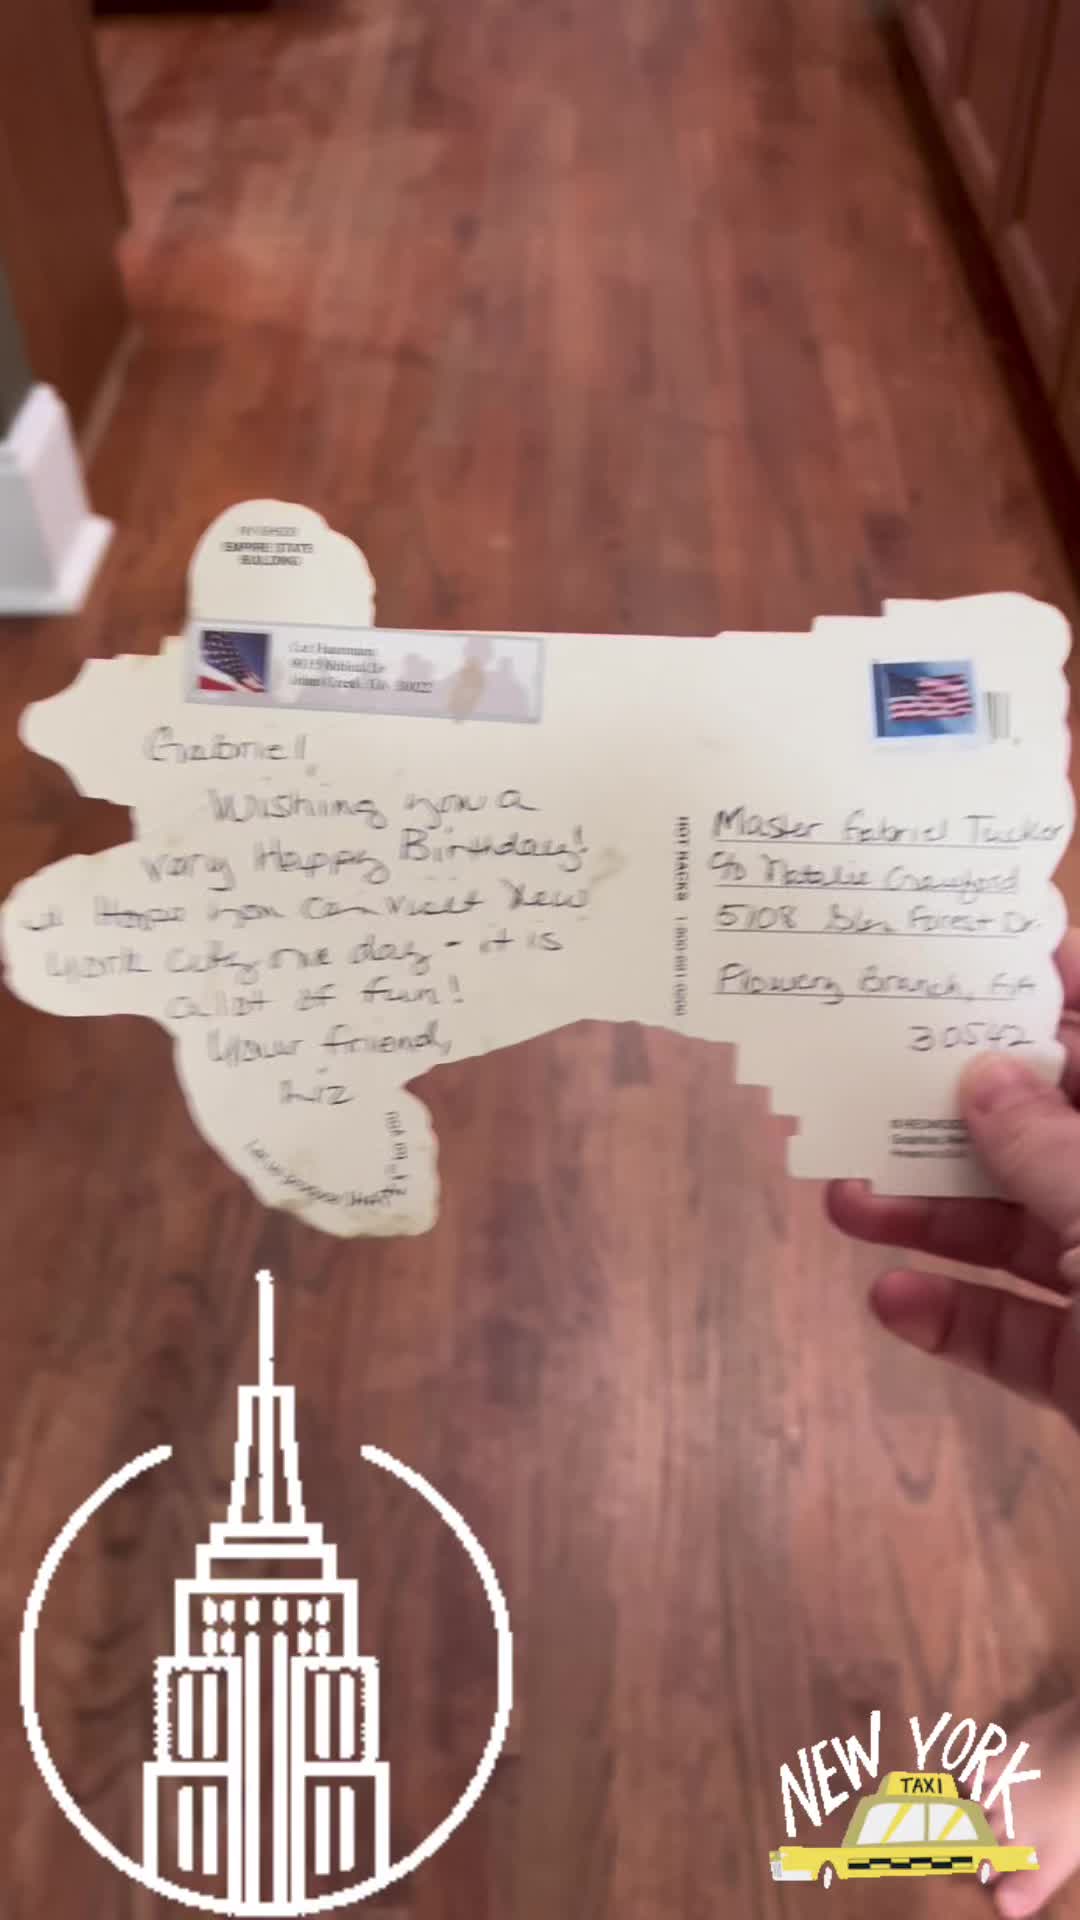 EMPIRE STATE
BUILDING
Gabriel,
Wishing you a
very Happy Birthday!
I Hope you can visit New
York City one day - it is
a lot of fun!
Your friend,
Liz
Master Gabriel Tucker
c/o Natalie Crawford
5108 Forest Dr.
Flowery Branch, GA
30542
NEW YORK
TAXI